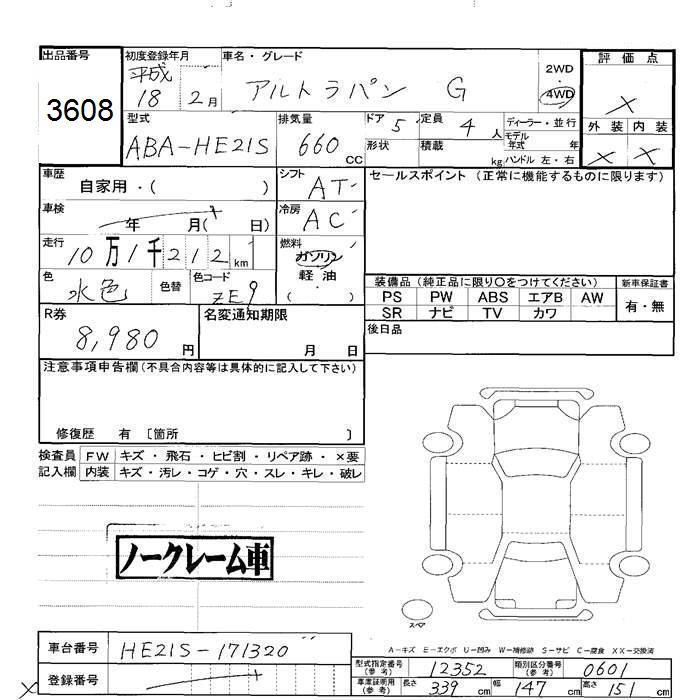 出品番号
3608
初度登録年月
平成
18 2月
車名・グレード
アルトラパン G
2WD
・
4WD
評価点
X
外装 内装
X X
型式
ABA-HE21S
排気量
660 CC
ドア 5
形状
定員 4 人
積載 kg
ディーラー・並行
モデル
年式 年
ハンドル 左・右
車歴
自家用・( )
シフト
AT
セールスポイント (正常に機能するものに限ります)
車検
年 月( 日)
冷房
AC
走行
10万1千212 km
燃料
ガソリン
軽油
( )
色
水色
色替
色コード
ZE9
装備品 (純正品に限り○をつけてください)
PS PW ABS エアB AW
SR ナビ TV カワ
新車保証書
有・無
R券
8,980 円
名変通知期限
月 日
後日品
注意事項申告欄 (不具合内容等は具体的に記入して下さい)
修復歴 有 〔箇所 〕
検査員 FW キズ・飛石・ヒビ割・リペア跡・×要
記入欄 内装 キズ・汚レ・コゲ・穴・スレ・キレ・破レ
ノークレーム車
スペア
A-キズ E-エクボ U-凹み W-補修跡 S-サビ C-腐食 XX-交換済
車台番号
HE21S-171320
登録番号
型式指定番号
(参考)
12352
類別区分番号
(参考)
0601
車庫証明用
(参考)
長さ 339 cm 幅 147 cm 高さ 151 cm